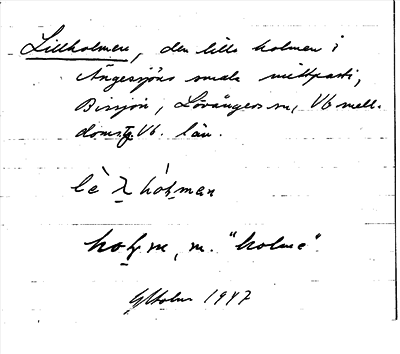 Lillholmen, den lille holmen i
Ängesjöns smala mittparti,
Bissjön, Lövångers sn, Vb mell.
doms. Vb. län.
holm, m. "holme".
1947